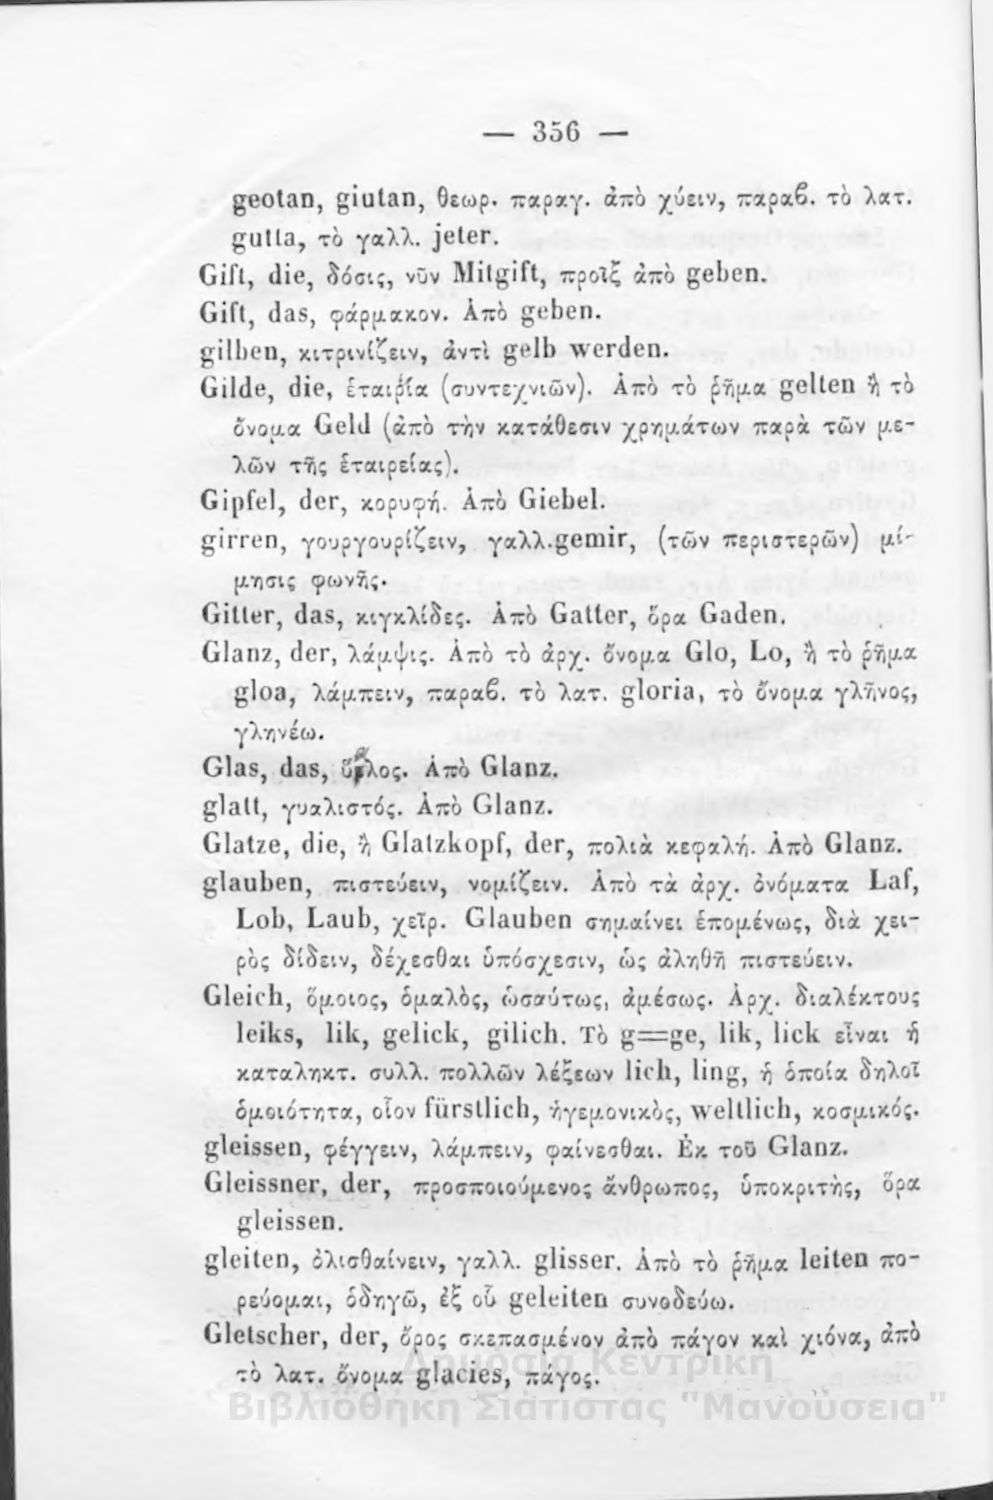 — 356 —
geotan, giutan, θεωρ. παραγ. ἀπὸ χύειν, παραβ. τὸ λατ.
gutta, τὸ γαλλ. jeter.
Gift, die, δόσις, νῦν Mitgift, προῖξ ἀπὸ geben.
Gift, das, φάρμακον. Ἀπὸ geben.
gilben, κιτρινίζειν, ἀντὶ gelb werden.
Gilde, die, ἑταιρία (συντεχνιῶν). Ἀπὸ τὸ ῥῆμα gelten ἢ τὸ
ὄνομα Geld (ἀπὸ τὴν κατάθεσιν χρημάτων παρὰ τῶν με-
λῶν τῆς ἑταιρείας).
Gipfel, der, κορυφή. Ἀπὸ Giebel.
girren, γουργουρίζειν, γαλλ.gemir, (τῶν περιστερῶν) μί-
μησις φωνῆς.
Gitter, das, κιγκλίδες. Ἀπὸ Gatter, ὅρα Gaden.
Glanz, der, λάμψις. Ἀπὸ τὸ ἀρχ. ὄνομα Glo, Lo, ἢ τὸ ῥῆμα
gloa, λάμπειν, παραβ. τὸ λατ. gloria, τὸ ὄνομα γλῆνος,
γληνέω.
Glas, das, ὕαλος. Ἀπὸ Glanz.
glatt, γυαλιστός. Ἀπὸ Glanz.
Glatze, die, ἢ Glatzkopf, der, πολιὰ κεφαλή. Ἀπὸ Glanz.
glauben, πιστεύειν, νομίζειν. Ἀπὸ τὰ ἀρχ. ὀνόματα Laf,
Lob, Laub, χεῖρ. Glauben σημαίνει ἑπομένως, διὰ χει-
ρὸς δίδειν, δέχεσθαι ὑπόσχεσιν, ὡς ἀληθῆ πιστεύειν.
Gleich, ὅμοιος, ὁμαλὸς, ὡσαύτως, ἀμέσως. Ἀρχ. διαλέκτους
leiks, lik, gelick, gilich. Τὸ g=ge, lik, lick εἶναι ἡ
καταληκτ. συλλ. πολλῶν λέξεων lich, ling, ἡ ὁποία δηλοῖ
ὁμοιότητα, οἷον fürstlich, ἡγεμονικὸς, weltlich, κοσμικός.
gleissen, φέγγειν, λάμπειν, φαίνεσθαι. Ἐκ τοῦ Glanz.
Gleissner, der, προσποιούμενος ἄνθρωπος, ὑποκριτὴς, ὅρα
gleissen.
gleiten, ὀλισθαίνειν, γαλλ. glisser. Ἀπὸ τὸ ῥῆμα leiten πο-
ρεύομαι, ὁδηγῶ, ἐξ οὗ geleiten συνοδεύω.
Gletscher, der, ὄρος σκεπασμένον ἀπὸ πάγον καὶ χιόνα, ἀπὸ
τὸ λατ. ὄνομα glacies, πάγος.
Δημόσια Κεντρική
Βιβλιοθήκη Σιάτιστας "Μανούσεια"